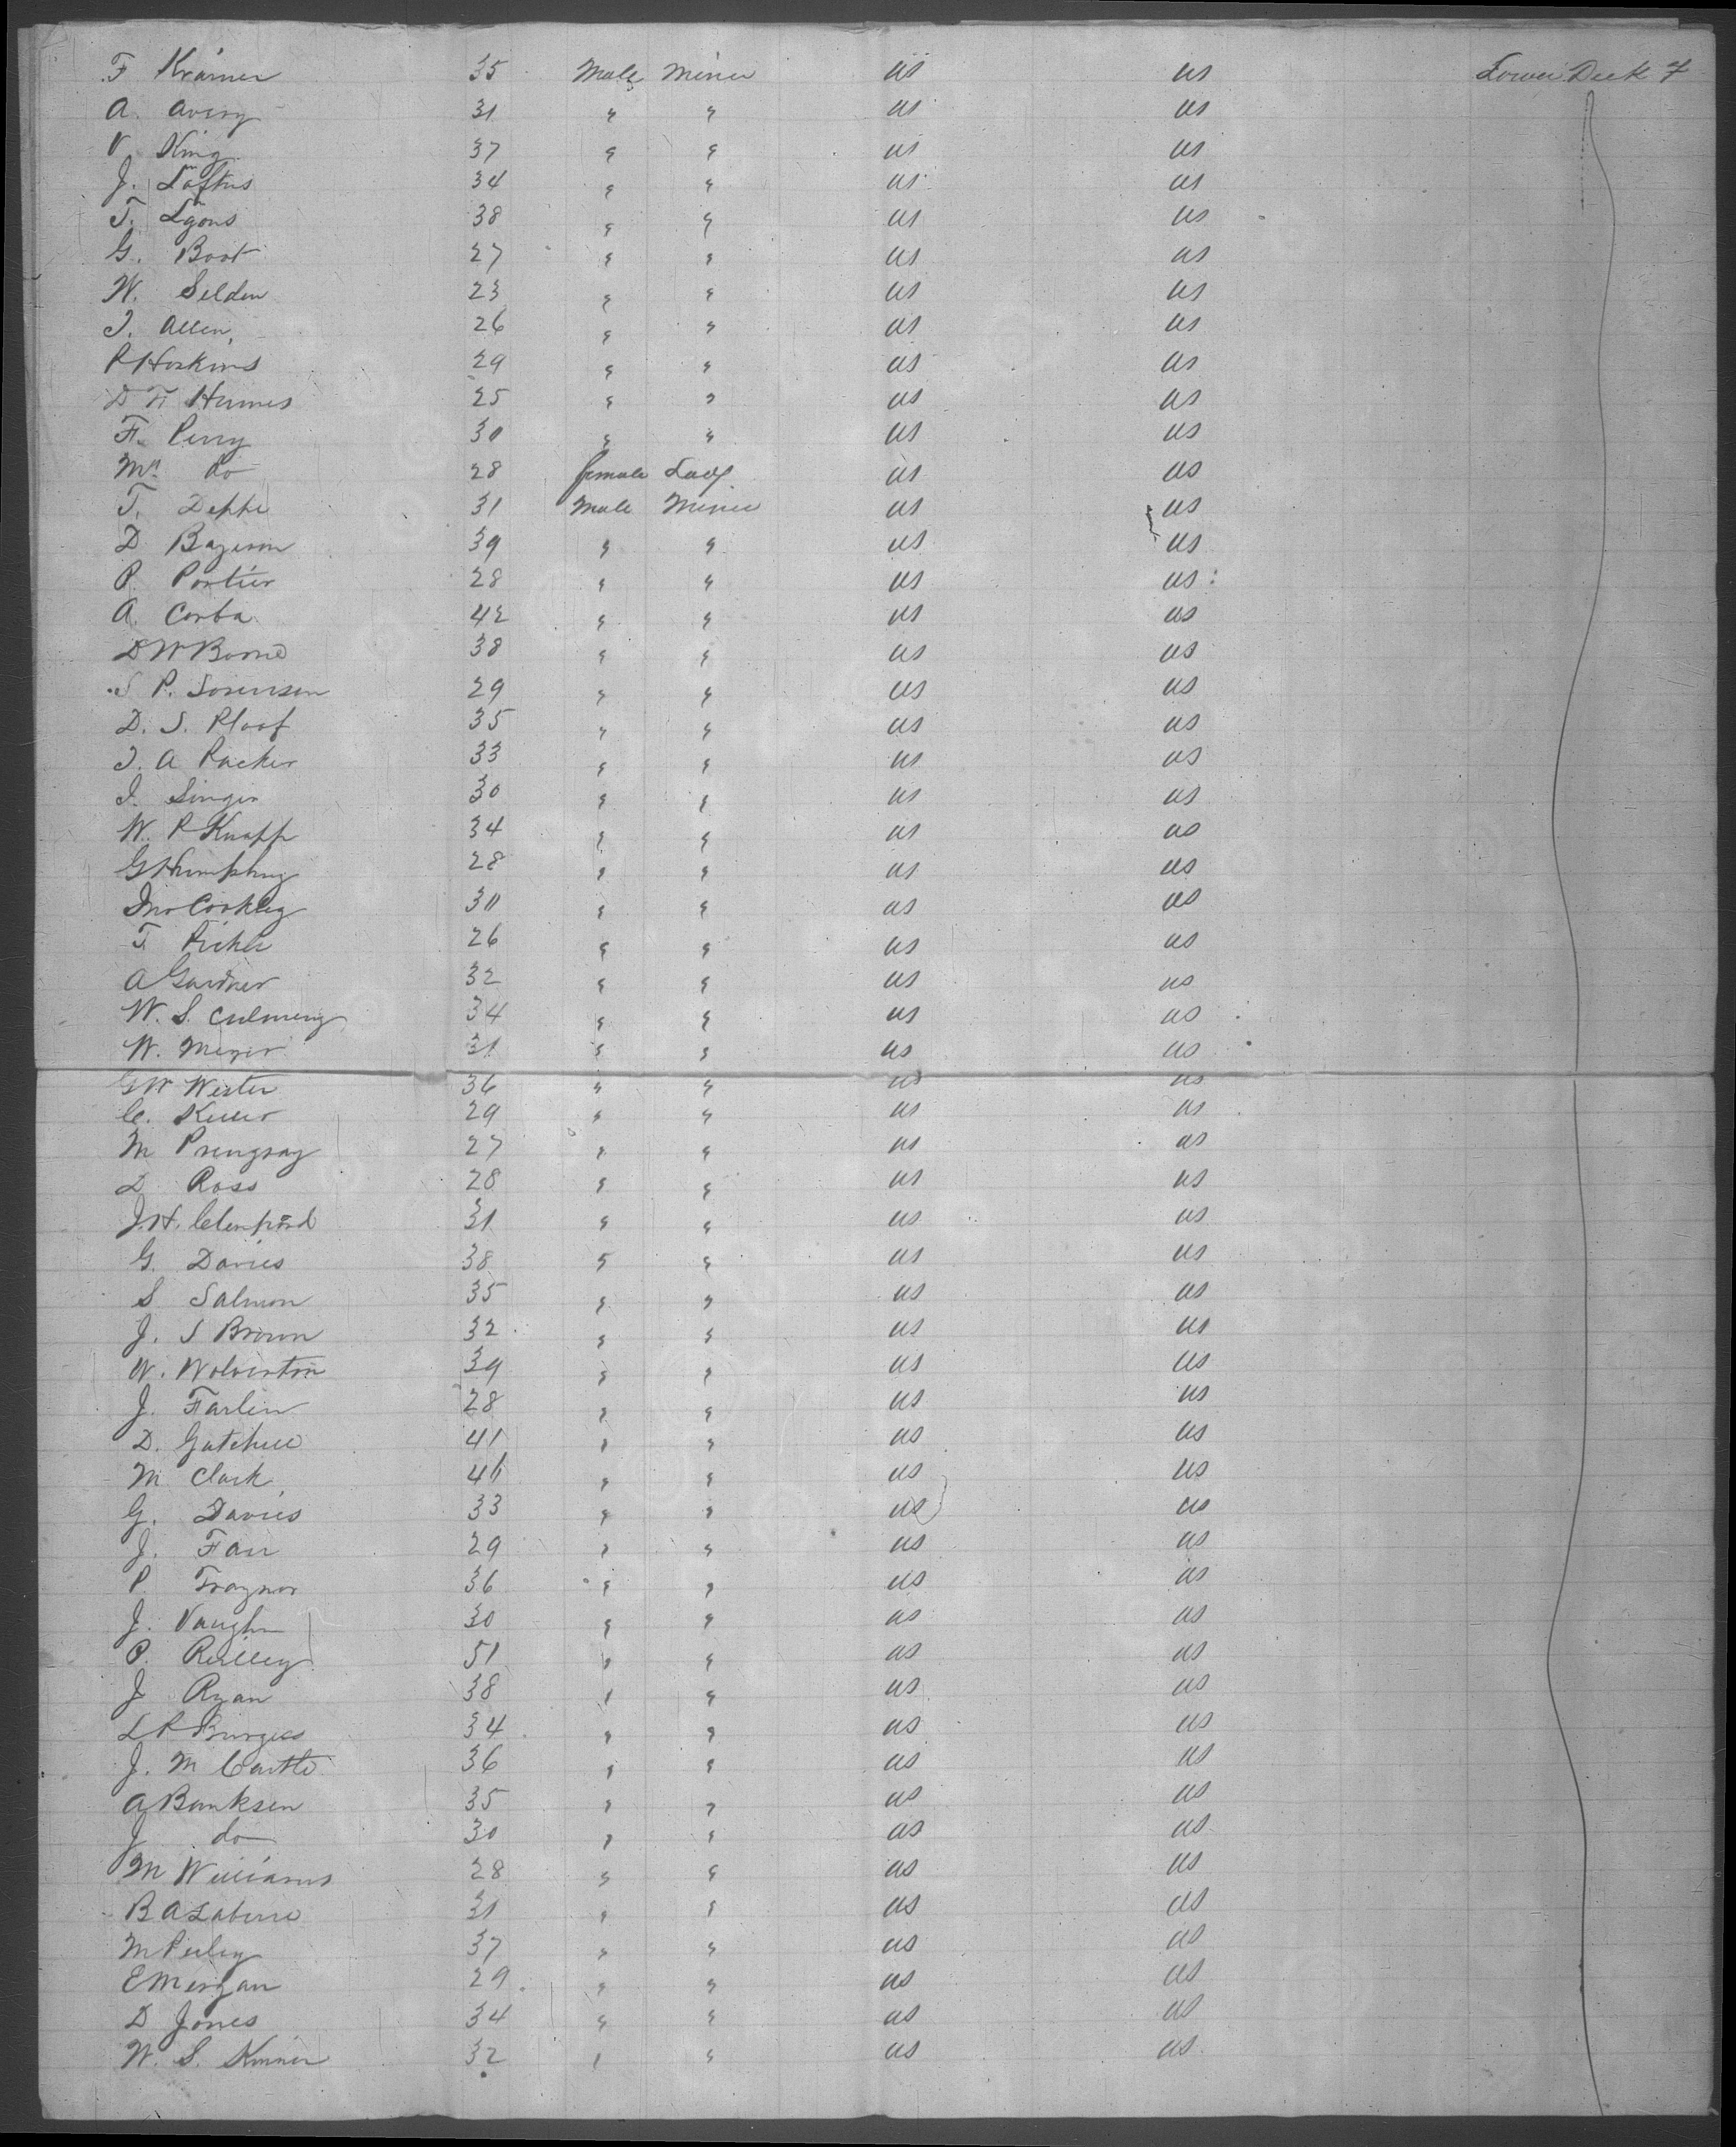 F Kramer 35 Male Miner US US Lower Deck 7
A. Avery 31 " " US US
V King 37 " " US US
J. Loftus 34 " " US US
T. Lyons 38 " " US US
G. Boot 27 " " US US
W. Selden 23 " " US US
J. Allen, 26 " " US US
P Hoskins 29 " " US US
D F Hermes 25 " " US US
F. Perry 30 " " US US
Mrs do 28 female Lady US US
T. Deppe 31 Male Miner US US
D Bazeron 39 " " US US
P. Portier 28 " " US US
A. Corba 42 " " US US
D W Boone 38 " " US US
S P. Sorensen 29 " " US US
D. S. Ploof 35 " " US US
J. A Packer 33 " " US US
I. Singer 30 " " US US
W. P Knapp 34 " " US US
G Humphrey 28 " " US US
Jno Conkley 30 " " US US
T. 26 " " US US
A Gardner 32 " " US US
W. S. Culmeny 34 " " US US
W. Meyer 31 " " US US
G W Wester 36 " " US US
C. Keller 29 " " US US
M 27 " " US US
D Ross 28 " " US US
J. H. Clenford 31 " " US US
G. Davies 38 " " US US
S Salmon 35 " " US US
J. S Brown 32 " " US US
W. Wolverton 39 " " US US
J. Farlin 28 " " US US
D. Gatchell 41 " " US US
M Clark 46 " " US US
G. Davies 33 " " US US
J. Farr 29 " " US US
P. Traynor 36 " " US US
J. Vaughn 30 " " US US
P. Reilley 51 " " US US
J Ryan 38 " " US US
L P Burgess 34 " " US US
J. M Castle 36 " " US US
A Banksen 35 " " US US
J do 30 " " US US
M Williams 28 " " US US
B A Laberre 31 " " US US
M 37 " " US US
E Morgan 29 " " US US
D Jones 34 " " US US
W. S. Kinner 32 " " US US